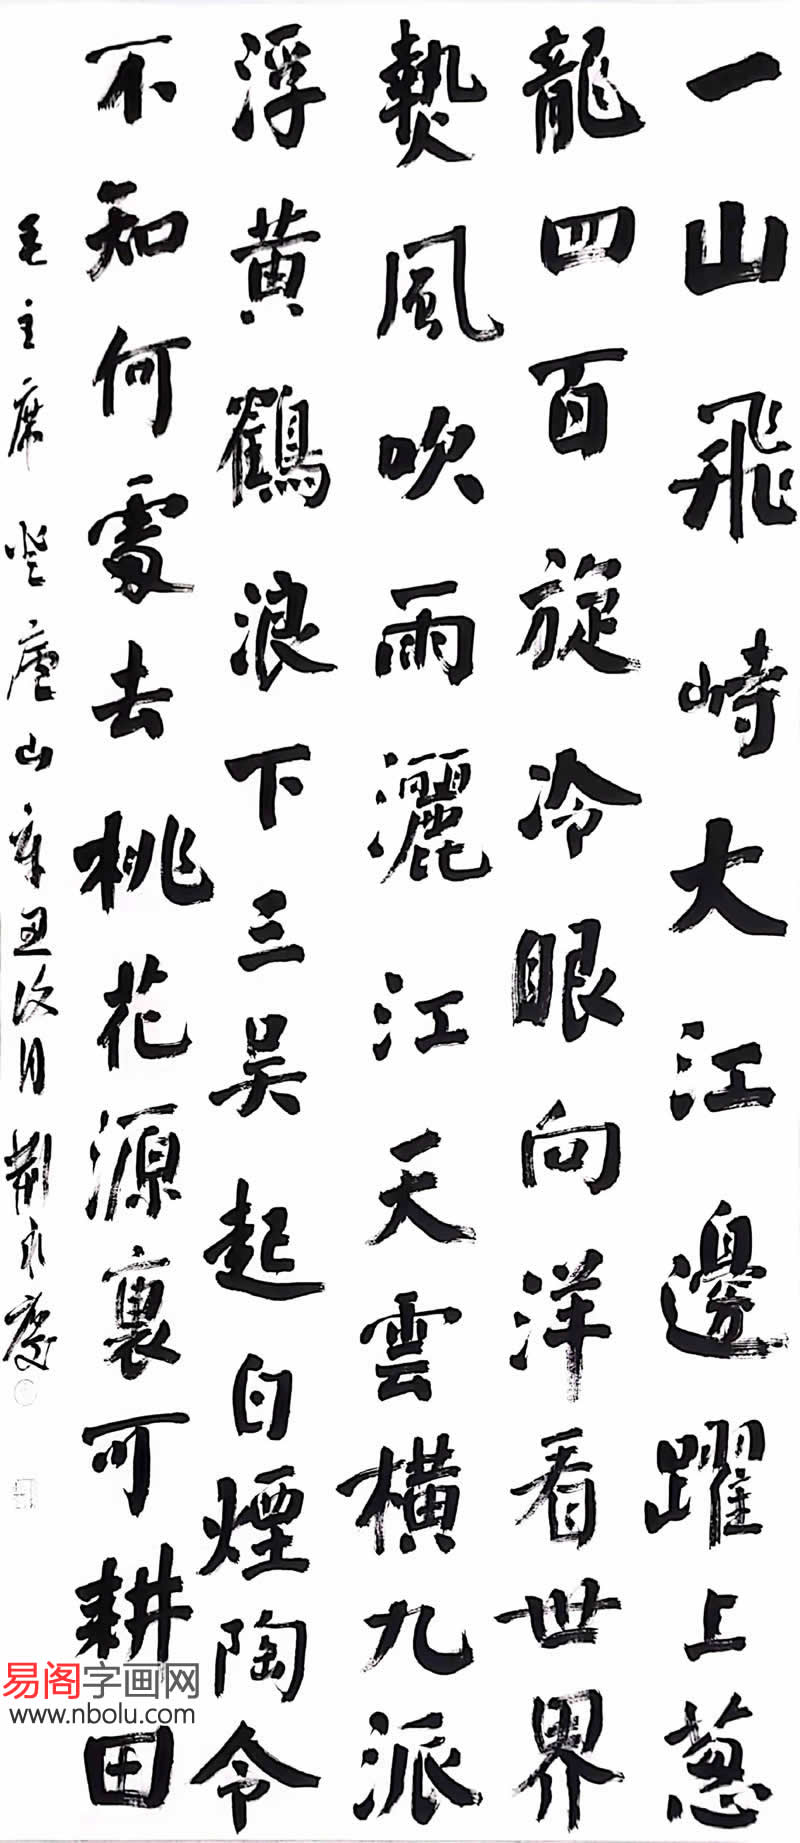 一山飛峙大江邊躍上葱
龍四百旋冷眼向洋看世界
熱風吹雨灑江天雲橫九派
浮黄鶴浪下三吴起白煙陶令
不知何處去桃花源裏可耕田
毛主席登廬山辛丑月荆永慶
易阁字画网
www.nbolu.com